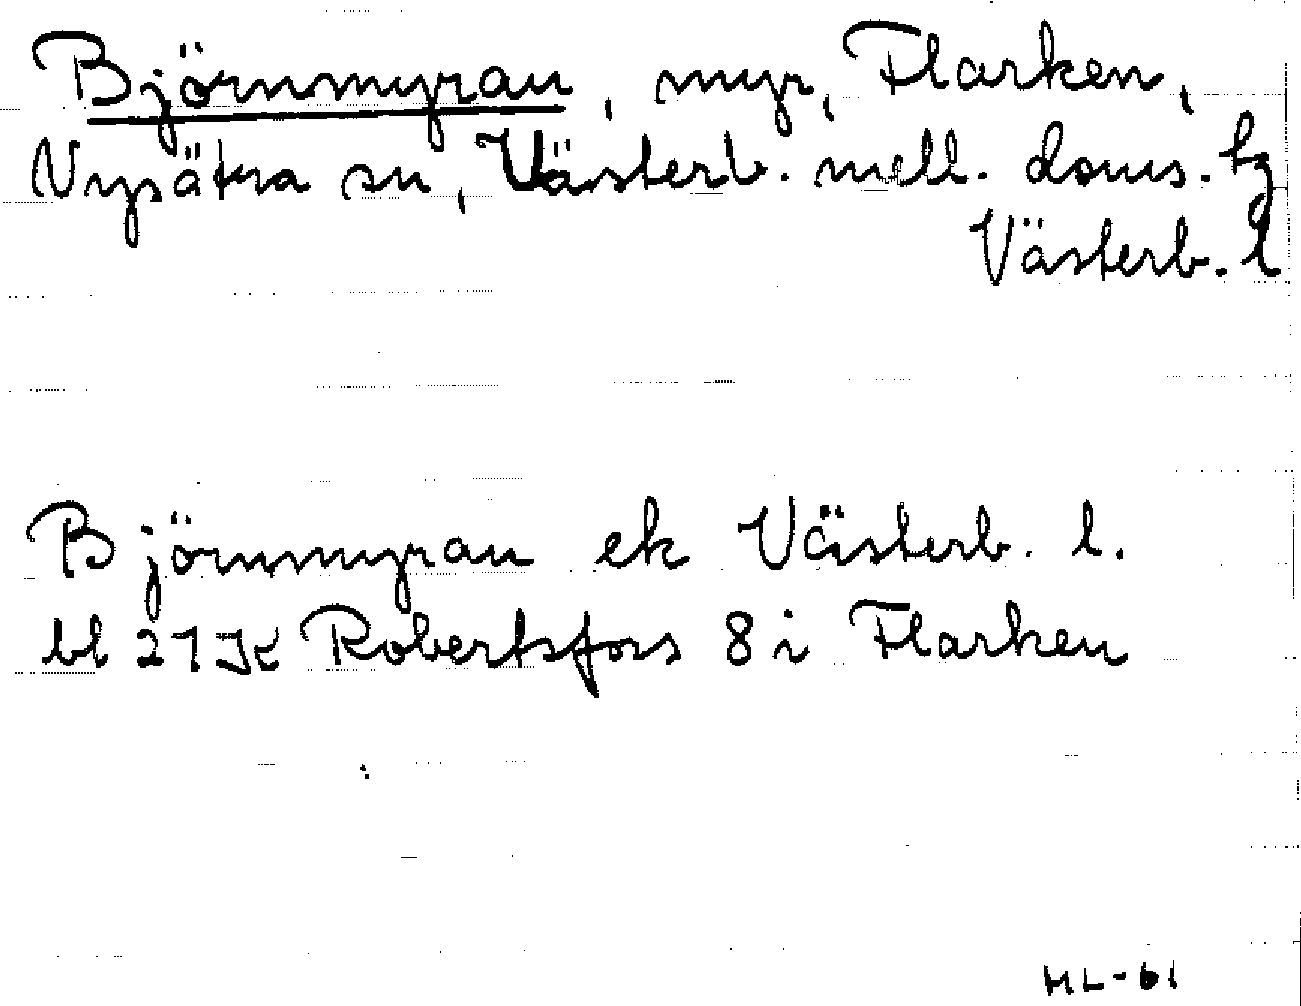 Björnmyran, myr, Flarken,
Nysätra sn, Västerb. mell. doms. hg
Västerb. l
Björnmyran ek Västerb. l.
bl 21 JK Robertsfors 8 i Flarken
HL-61